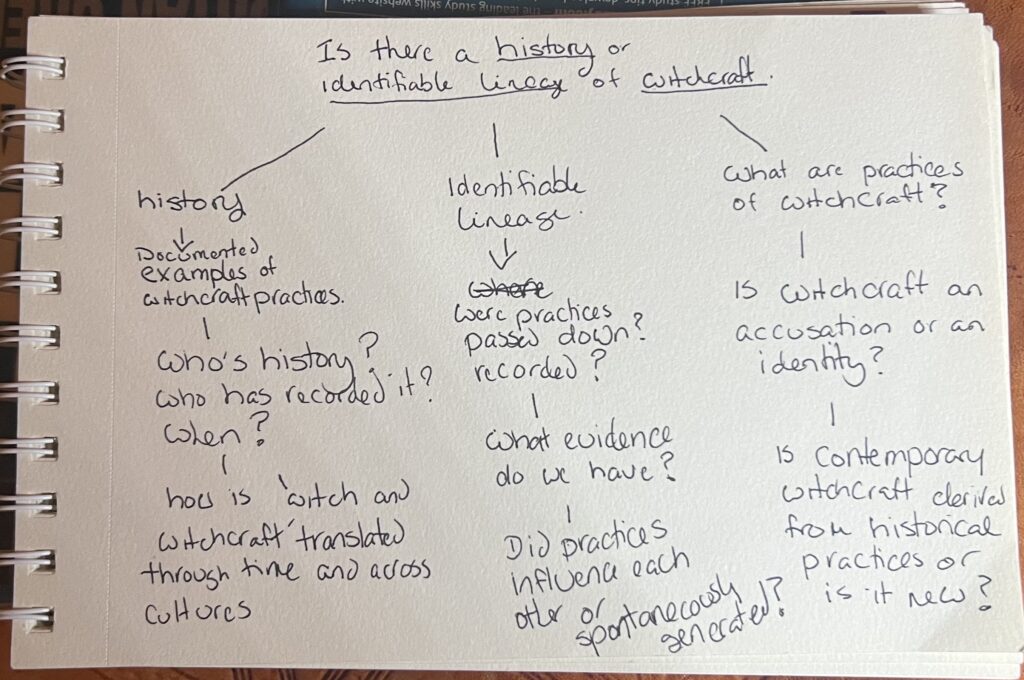 the leading study skills website
Is there a history or
identifiable lineag of witchcraft.
history
Documented
examples of
witchcraft practices.
Who's history?
who has recorded it?
When?
how is 'witch and
witchcraft' translated
through time and across
cultures
Identifiable
lineage.
Where
Were practices
passed down?
recorded?
What evidence
do we have?
Did practices
influence each
other or
spontaneously
generated?
What are practices
of witchcraft?
Is witchcraft an
accusation or an
identity?
Is contemporary
witchcraft derived
from historical
practices or
is it new?